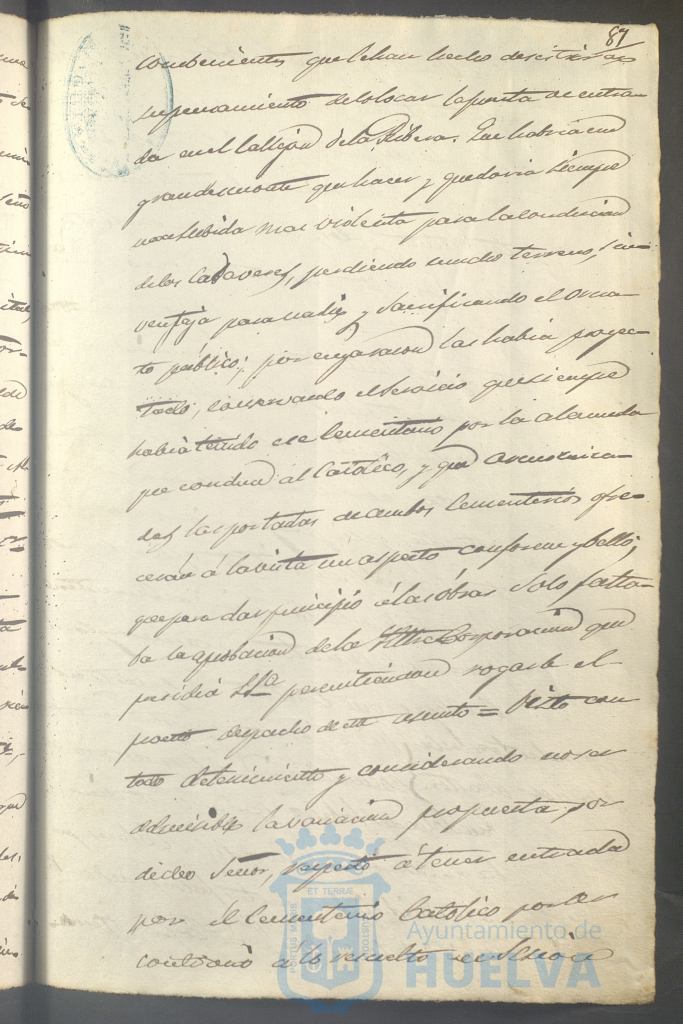 87
combenientes que le han hecho desistir
su pensamiento de colocar la puerta de entra-
da en el callejon de la Ribera. Que habria
grandemente que hacer y quedaria siempre
una subida mas violenta para la conduccion
de los cadaveres, perdiendo mucho terreno, sin
ventaja para nadie y sacrificando el orna-
to público; por cuya razon las habia proyec-
tado, conservando el servicio que siempre
habia tenido ese Cementerio por la alameda
que conduce al Católico, y que
las portadas de ambos Cementerios ofre-
cerán á la vista un aspecto conforme y bello,
que para dar principio á las obras solo falta-
ba la aprobacion de la Iltre Corporacion que
presidia S.Sa permitiendose rogarle el
pronto despacho de este asunto = Visto con
todo detenimiento y considerando no ser
admisible la variacion propuesta por
dicho Señor, respecto á tener entrada
por el Cementerio Católico por ser
contrario á lo resuelto en
ET TERRÆ
PORTUS MARIS
CUSTODIA
Ayuntamiento de
HUELVA